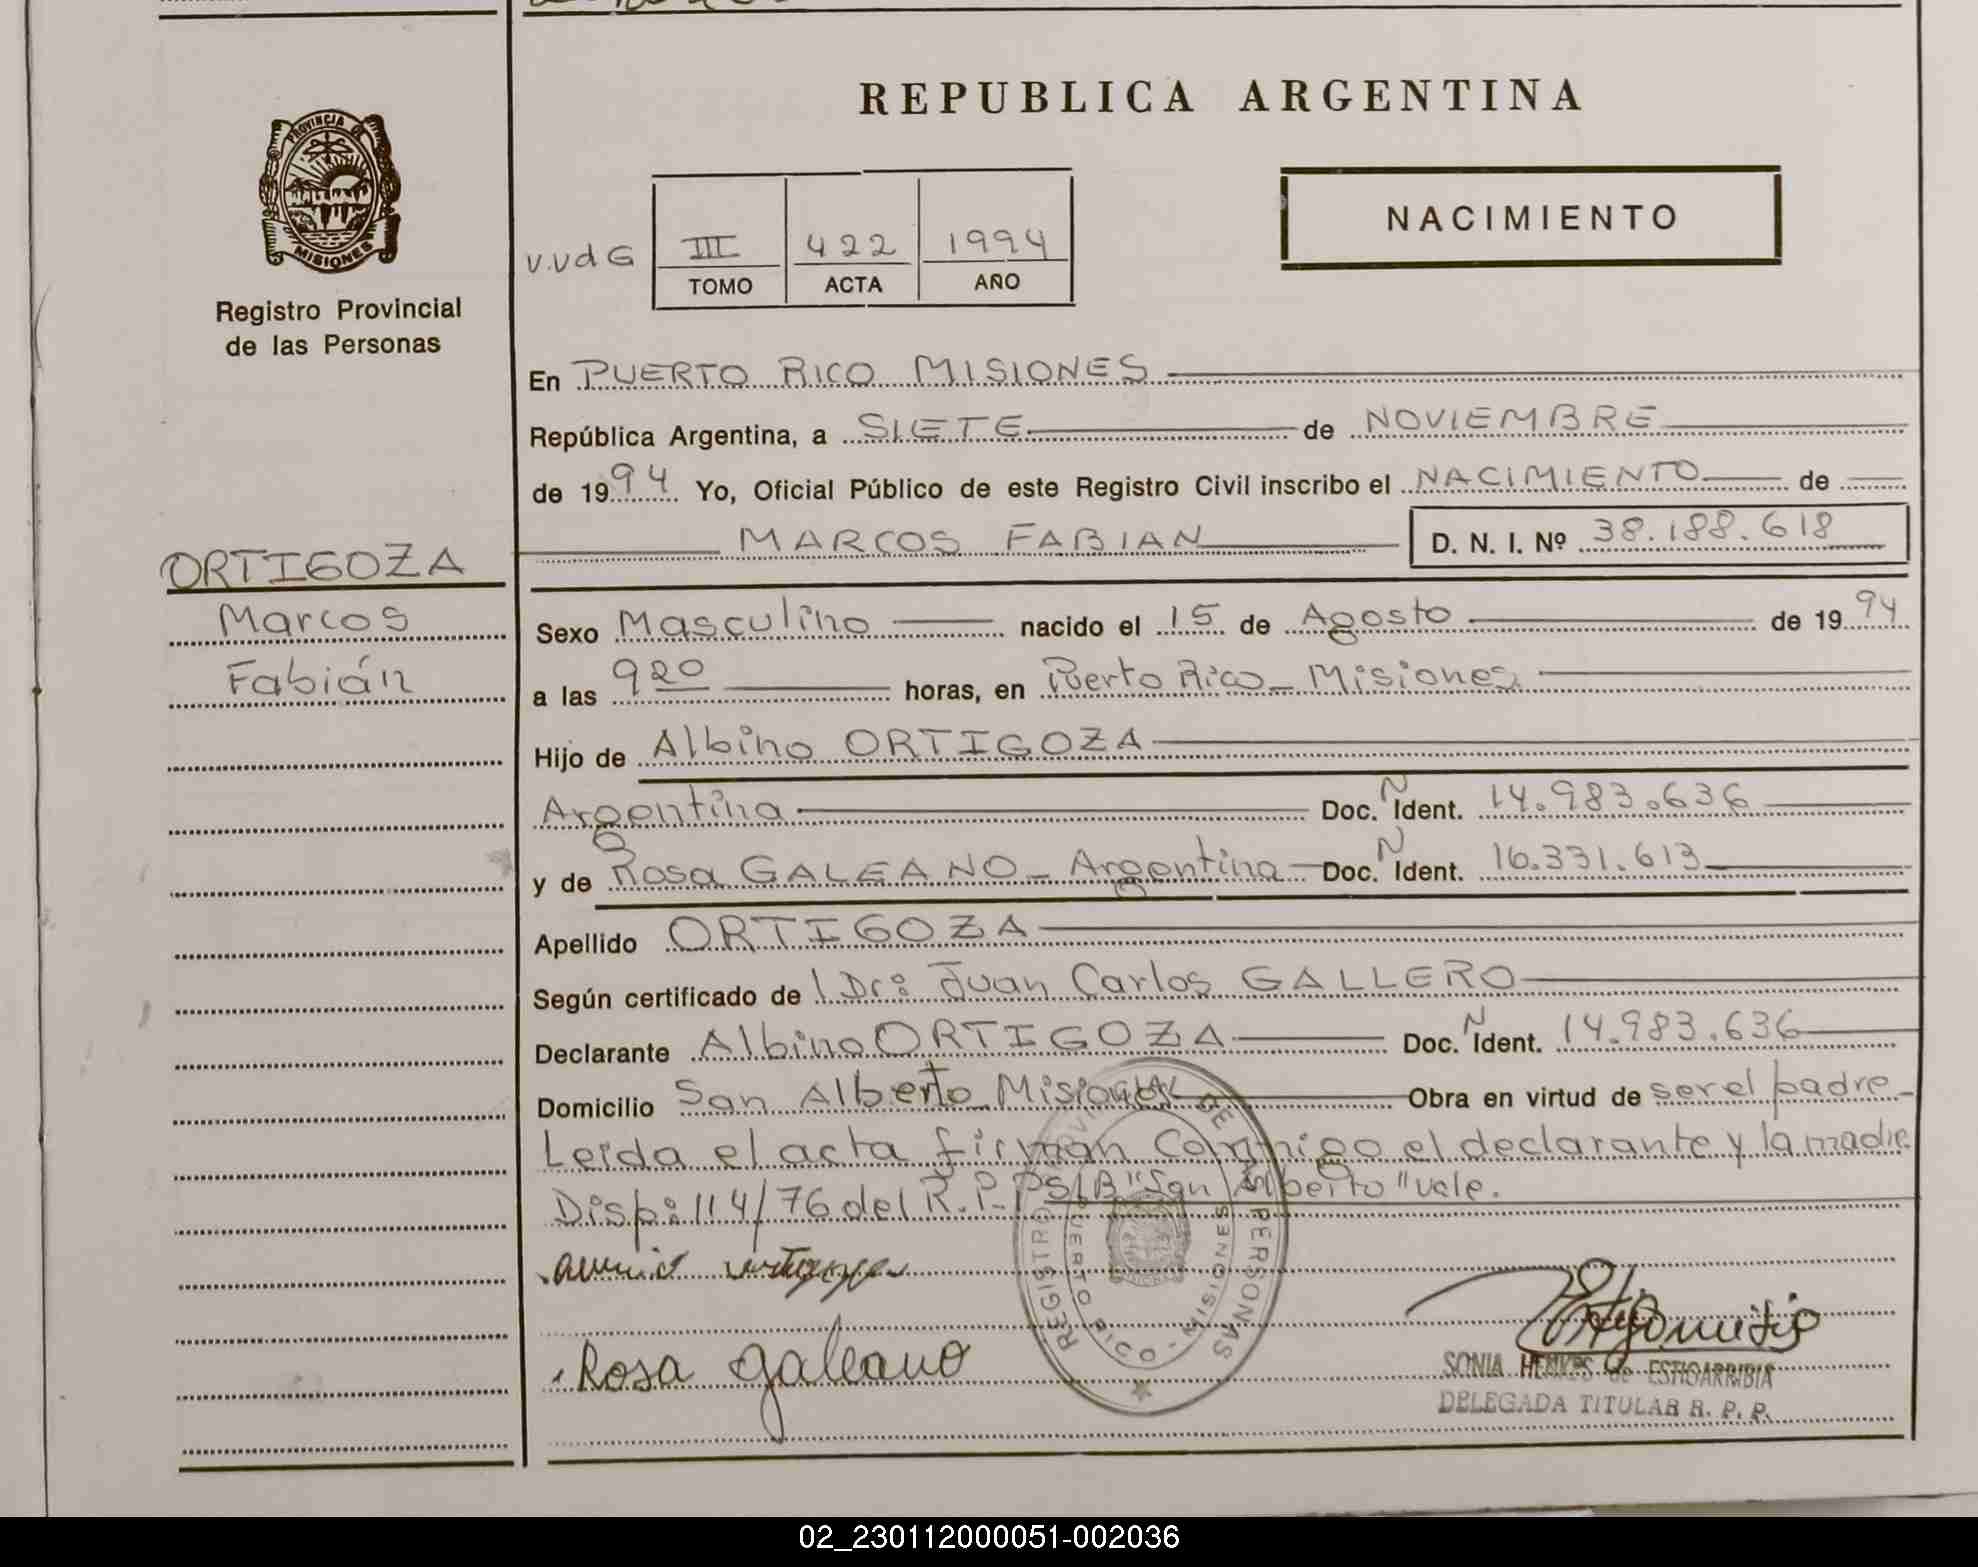 REPUBLICA ARGENTINA
PROVINCIA DE
MISIONES
Registro Provincial
de las Personas
NACIMIENTO
V.VdG III 422 1994
TOMO ACTA AÑO
En PUERTO RICO MISIONES
República Argentina, a SIETE de NOVIEMBRE
de 1994 Yo, Oficial Público de este Registro Civil inscribo el NACIMIENTO de
MARCOS FABIAN D. N. I. Nº 38.188.618
ORTIGOZA
Marcos
Fabián
Sexo Masculino nacido el 15 de Agosto de 1994
a las 920 horas, en Puerto Rico - Misiones
Hijo de Albino ORTIGOZA
Argentina Doc. N Ident. 14.983.636
y de Rosa GALEANO - Argentina Doc. N Ident. 16.331.613
Apellido ORTIGOZA
Según certificado de l Dr: Juan Carlos GALLERO
Declarante Albino ORTIGOZA Doc. N Ident. 14.983.636
Domicilio San Alberto Misiones Obra en virtud de ser el padre -
Leida el acta firman conmigo el declarante y la madre
Disp: 114/76 del R.P.P S/B "San Alberto" vale.
REGISTRO PROVINCIAL DE PERSONAS
PUERTO RICO - MISIONES
Rosa galeano
SONIA HENKES de ESTIGARRIBIA
DELEGADA TITULAR R. P. P.
02_230112000051-002036